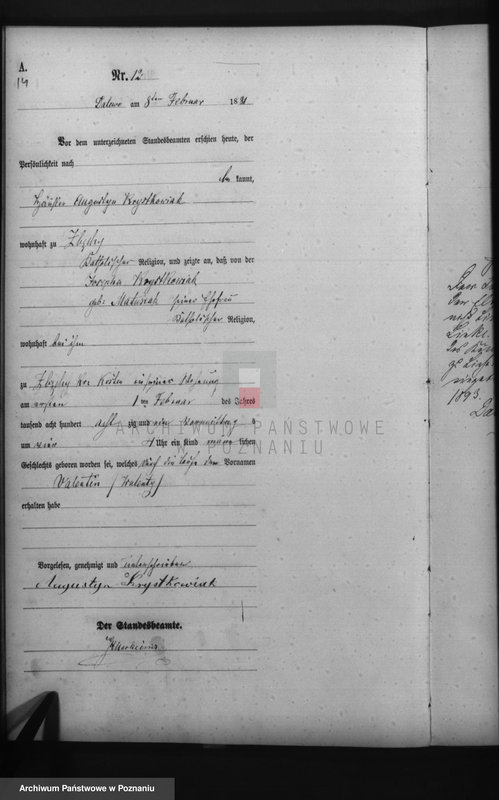 A.
14
Nr. 12
Dalewo am 8ten Februar 1881
Vor dem unterzeichneten Standesbeamten erschien heute, der
Persönlichkeit nach
kannt,
Häusler Augustyn Krystkowiak
wohnhaft zu Zbzchy
katholischer Religion, und zeigte an, daß von der
Josepha Krystkowiak
geb. Matusiak seiner Ehefrau
katholischer Religion,
wohnhaft bei ihm
zu Zbzchy Krs Kosten in seiner Wohnung
am ersten 1ten Februar des Jahres
tausend acht hundert achtzig und ein Vormittag
um vier 4 Uhr ein Kind männlichen
Geschlechts geboren worden sei, welches den Vornamen
Valentin (Walenty)
erhalten habe
Vorgelesen, genehmigt und unterschrieben
Augustyn Krystkowiak
Der Standesbeamte.
ARCHIWUM PAŃSTWOWE
W POZNANIU
1893.
Archiwum Państwowe w Poznaniu